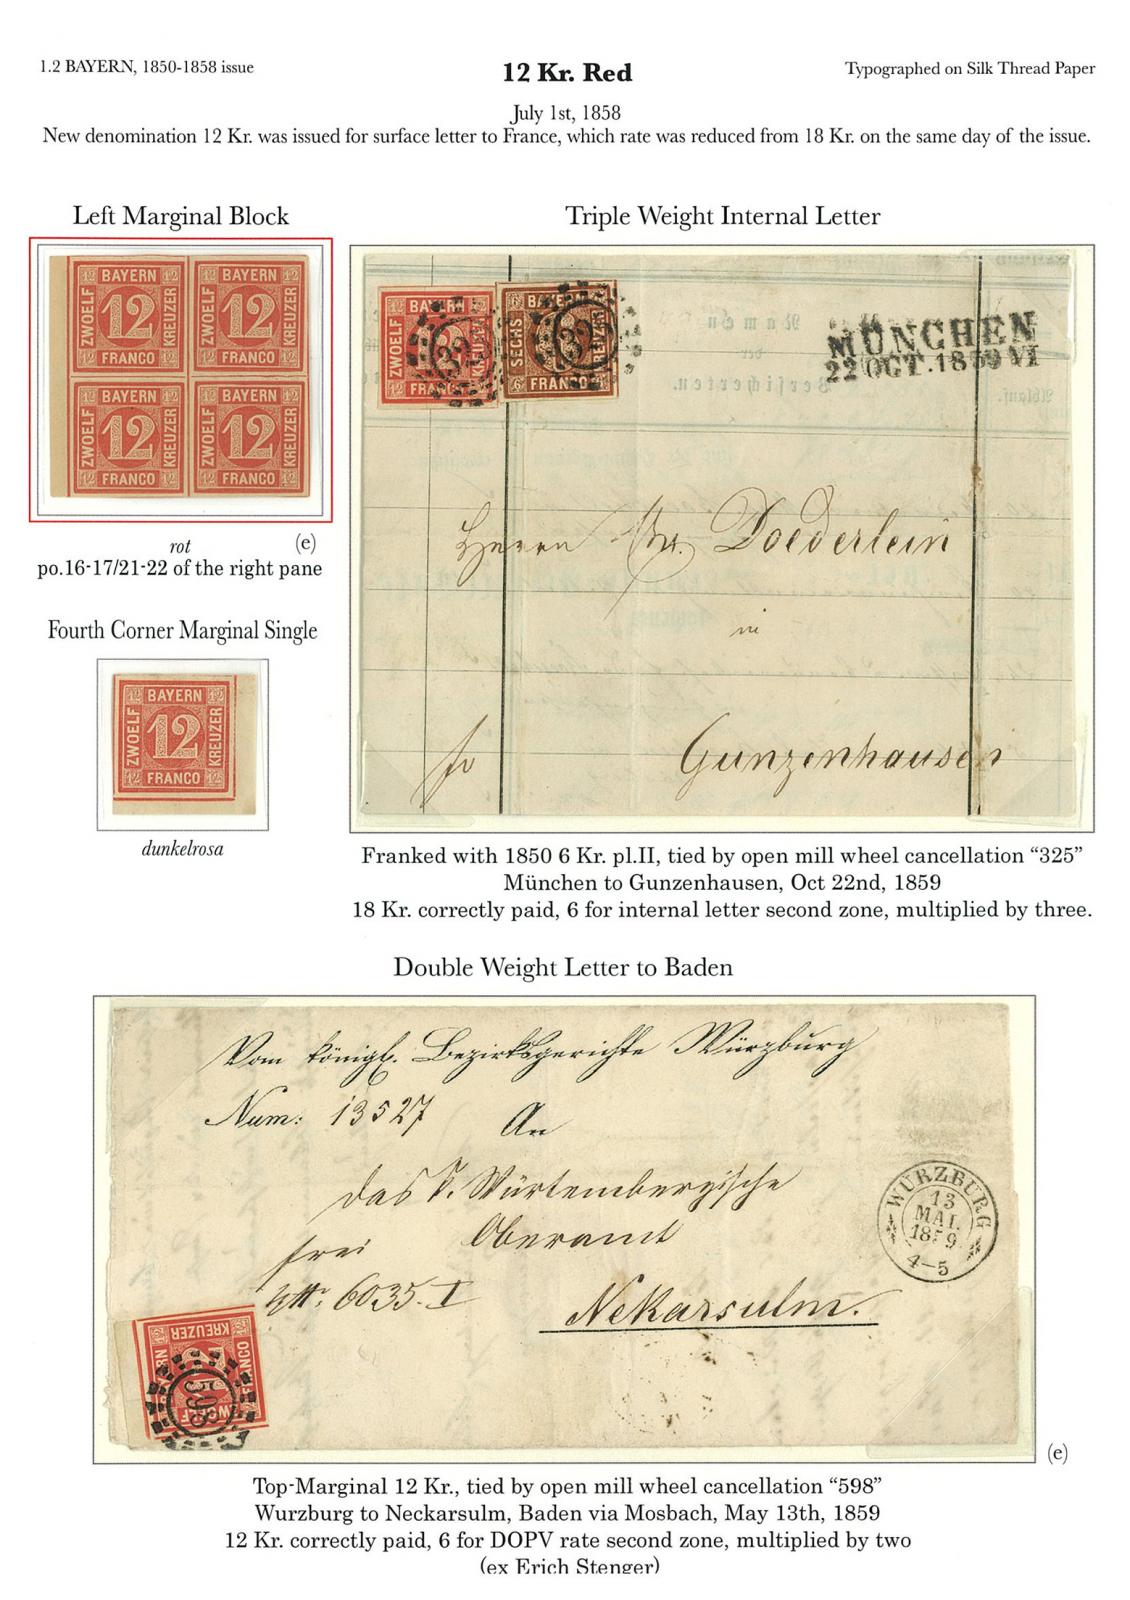 1.2 BAYERN, 1850-1858 issue
12 Kr. Red
Typographed on Silk Thread Paper
July 1st, 1858
New denomination 12 Kr. was issued for surface letter to France, which rate was reduced from 18 Kr. on the same day of the issue.
Left Marginal Block
12 BAYERN 12 12 BAYERN 12
ZWOELF 12 KREUZER ZWOELF 12 KREUZER
12 FRANCO 12 12 FRANCO 12
12 BAYERN 12 12 BAYERN 12
ZWOELF 12 KREUZER ZWOELF 12 KREUZER
12 FRANCO 12 12 FRANCO 12
rot (e)
po.16-17/21-22 of the right pane
Fourth Corner Marginal Single
12 BAYERN 12
ZWOELF 12 KREUZER
12 FRANCO 12
dunkelrosa
Triple Weight Internal Letter
ZWOELF
FRANCO
SECHS
FRANCO
MÜNCHEN
22 OCT. 1859 VI
Herrn Dr. Doederlein
in
Gunzenhausen
Franked with 1850 6 Kr. pl.II, tied by open mill wheel cancellation “325”
München to Gunzenhausen, Oct 22nd, 1859
18 Kr. correctly paid, 6 for internal letter second zone, multiplied by three.
Double Weight Letter to Baden
Vom königl. Bezirksgerichte Würzburg
Num: 13527 An
das k. Würtembergische
frei Oberamt
6035. I
Nekarsulm.
WÜRZBURG
13
MAI.
1859
4-5
KREUZER
FRANCO
598
(e)
Top-Marginal 12 Kr., tied by open mill wheel cancellation “598”
Wurzburg to Neckarsulm, Baden via Mosbach, May 13th, 1859
12 Kr. correctly paid, 6 for DOPV rate second zone, multiplied by two
(ex Erich Stenger)